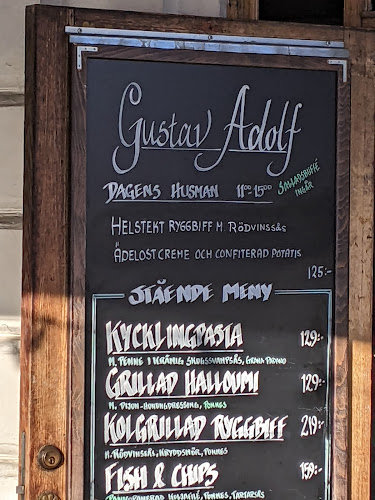 Gustav Adolf
DAGENS HUSMAN 11⁰⁰-15⁰⁰ SALLADSBUFFÉ
INGÅR
HELSTEKT RYGGBIFF M. RÖDVINSSÅS
ÄDELOSTCREME OCH CONFITERAD POTATIS
125:-
STÅENDE MENY
KYCKLINGPASTA 129:-
M. PENNE I KRÄMIG SKOGSSVAMPSÅS, GRANA PADANO
GRILLAD HALLOUMI 129:-
M. DIJON-HONUNGSDRESSING, POMMES
KOLGRILLAD RYGGBIFF 219:-
M. RÖDVINSSÅS, KRYDDSMÖR, POMMES
FISH & CHIPS 159:-
PANKOPANERAD KOLJAFILÉ, POMMES, TARTARSÅS